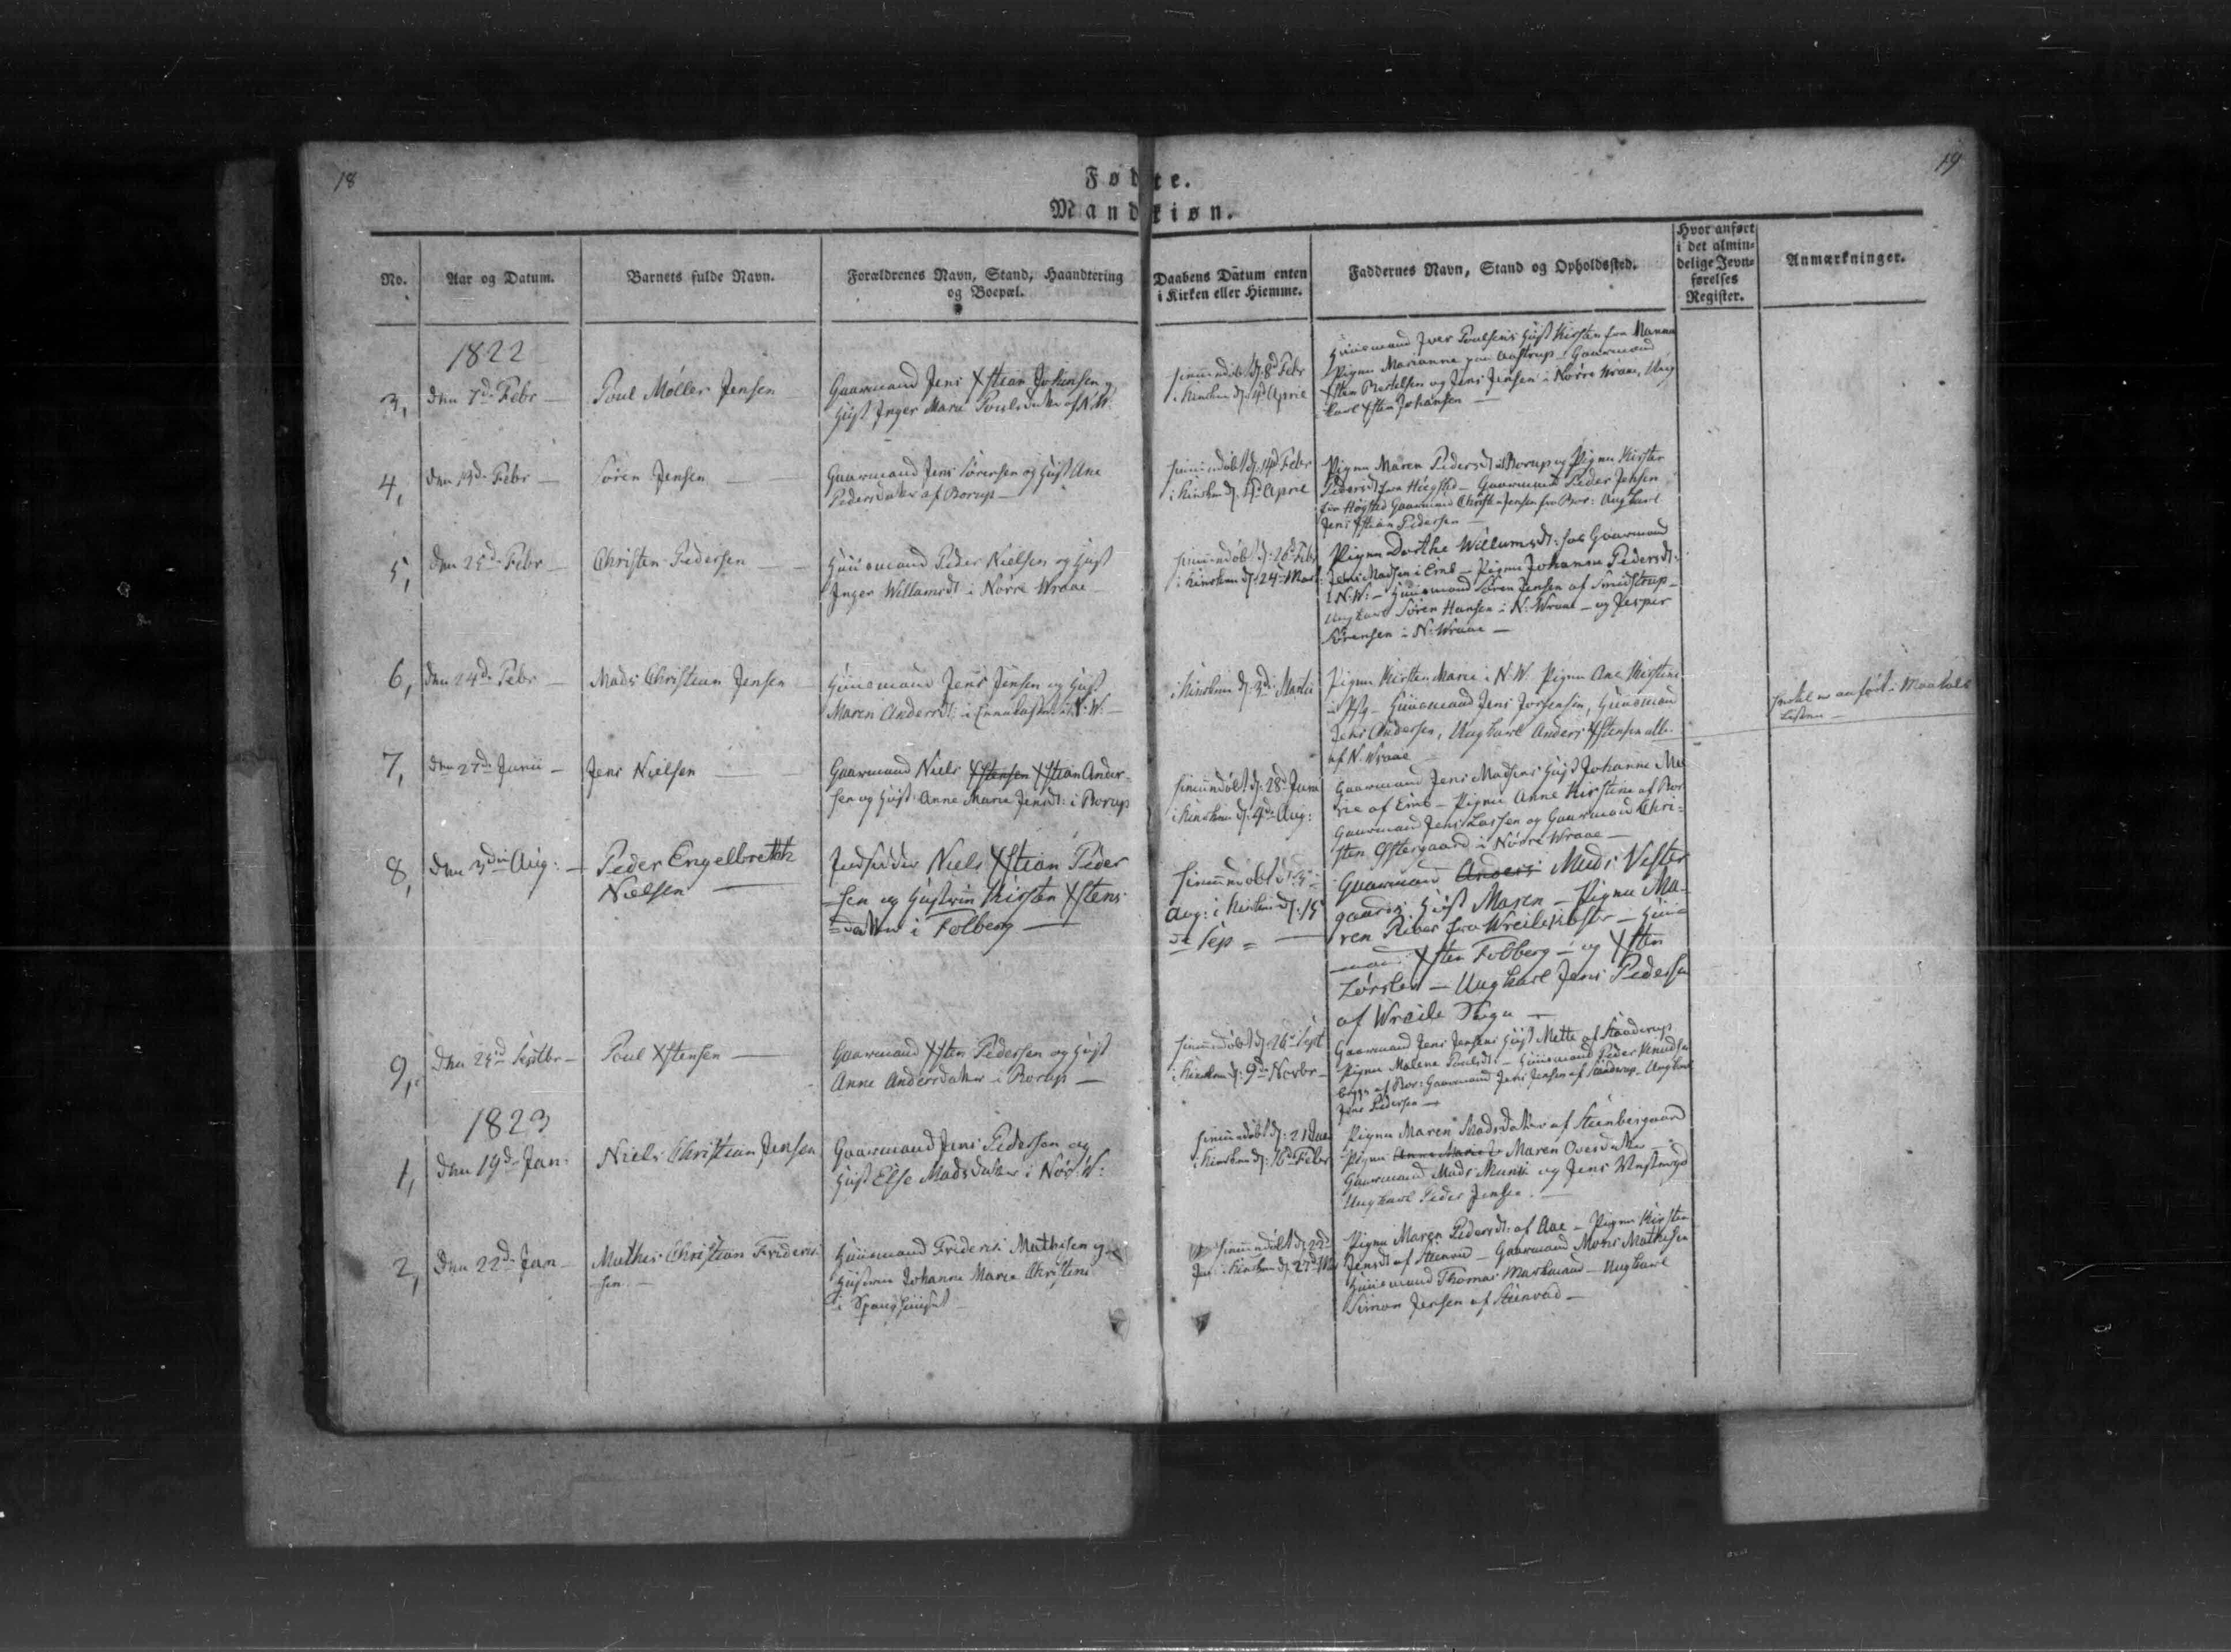 18
19
Fødte.
Mandkiøn.
No.
Aar og Datum.
Barnets fulde Navn.
Forældrenes Navn, Stand, Haandtering
og Boepæl.
Daabens Datum enten
i Kirken eller Hiemme.
Faddernes Navn, Stand og Opholdssted.
Hvor anført
i det almin-
delige Jevn-
førelses
Register.
Anmærkninger.
1822
3,
den 7de Febr
Poul Møller Jensen
Gaarmand Jens Xstian Johansen og
Hust Inger Marie Poulsdatter af N. W.
hiemmedøbt d. 8d Febr
i Kirken d. April
Huusmand Iver Poulsens Hust Kirsten fra
Pigen Marianne paa Aastrup - Gaarmand
Xsten Bertelsen og Jens Jensen i Nørre Wraae, Ung
karl Xsten Johansen
4,
den 13d Febr
Søren Jensen
Gaarmand Jens Sørensen og Hust Ane
Pedersdatter af Borup
hiemmedøbt d. 14d Febr
i Kirken d. April
Pigen Maren Pedersd i Borup og Pigen Kirsten
Pedersd fra Høgsted - Gaarmand Peder Jensen
fra Høgsted Gaarmand Christen Jensen fra Bor: Ungkarl
Jens Xstian Pedersen
5,
den 25d Febr
Christen Pedersen
Huusmand Peder Nielsen og Hust
Inger Willumsdt i Nørre Wraae
hiemmedøbt d: 26d Febr
i Kirken d. 24d Mart
Pigen Dorthe Willumsdt: hos Gaarmand
Jens Madsen i Emb - Pigen Johanne Pedersdt:
i N: W: - Huusmand Søren Jensen af Smidstrup -
Ungkarl Søren Hansen i N: Wraae - og Jesper
Sørensen i N: Wraae
6,
den 24d Febr
Mads Christian Jensen
Huusmand Jens Jensen og Hust
Maren Andersdt: i N: W:
i Kirken d. 3d Martii
Pigen Kirsten Marie i N. W. Pigen Ane Kirstine
Huusmand Jens Jensen, Huusmand
Jens Andersen, Ungkarl Anders Xstensen alle
af N. Wraae
er anført i
Listen
7,
den 27d Junii
Jens Nielsen
Gaarmand Niels Xstensen Xstian Ander-
sen og Hust: Anne Marie Jensdt: i Borup
hiemmedøbt d. 28d Juni
i Kirken d. 4d Aug:
Gaarmand Jens Madsens Hust Johanne Ma
rie af Emb - Pigen Anne Kirstine af Bor
Gaarmand Jens Larsen og Gaarmand Chri-
sten Østergaard i Nørre Wraae
8,
den 3die Aug:
Peder Engelbreth
Nielsen
Indsidder Niels Xstian Peder
sen og Hustrue Kirsten Xstens
datter i Folberg
hiemmedøbt d.
Aug: i Kirken d. 15
de Sep
Gaarmand Anders Mads Vester
gaards Hust Maren - Pigen Ma-
ren fra Wreilekloster - Huus
mand Xsten Folberg - og Xsten
Ungkarl Jens Pedersen
af Wreile Sogn
9,
den 25d Septbr
Poul Xstensen
Gaarmand Xsten Pedersen og Hust
Anne Andersdatter i Borup
hiemmedøbt d. 26d Sept
i Kirken d: 9d Novbr
Gaarmand Jens Jensens Hust Mette af Standerup
Pigen Malene Poulsdt: - Huusmand Peder Knudsen
begge af Bor: Gaarmand Jens Jensen af Standerup - Ungkarl
Jens Pedersen
1823
1,
den 19d Jan:
Niels Christian Jensen
Gaarmand Jens Pedersen og
Hust Else Madsdatter i Nør: W:
hiemmedøbt d: 21 Jan
i Kirken d: 16d Febr
Pigen Maren Madsdatter af Steenbergaard
Pigen Anne Marie Maren Ovesdatter
Gaarmand Mads Munk og Jens
Ungkarl Peder Jensen
2,
den 22d Jan
Mathis Christian Frideric
sen
Huusmand Frideric Mathisen og
Hustrue Johanne Marie Christine
i Spanghuuset
hiemmedøbt d. 22d
Jan: i Kirken d. 27d
Pigen Maren Pedersdt: af Aae - Pigen Kirsten
Jensdt af Steenvad - Gaarmand Mons Mathisen
Huusmand Thomas Markmand - Ungkarl
Simon Jensen af Steenvad